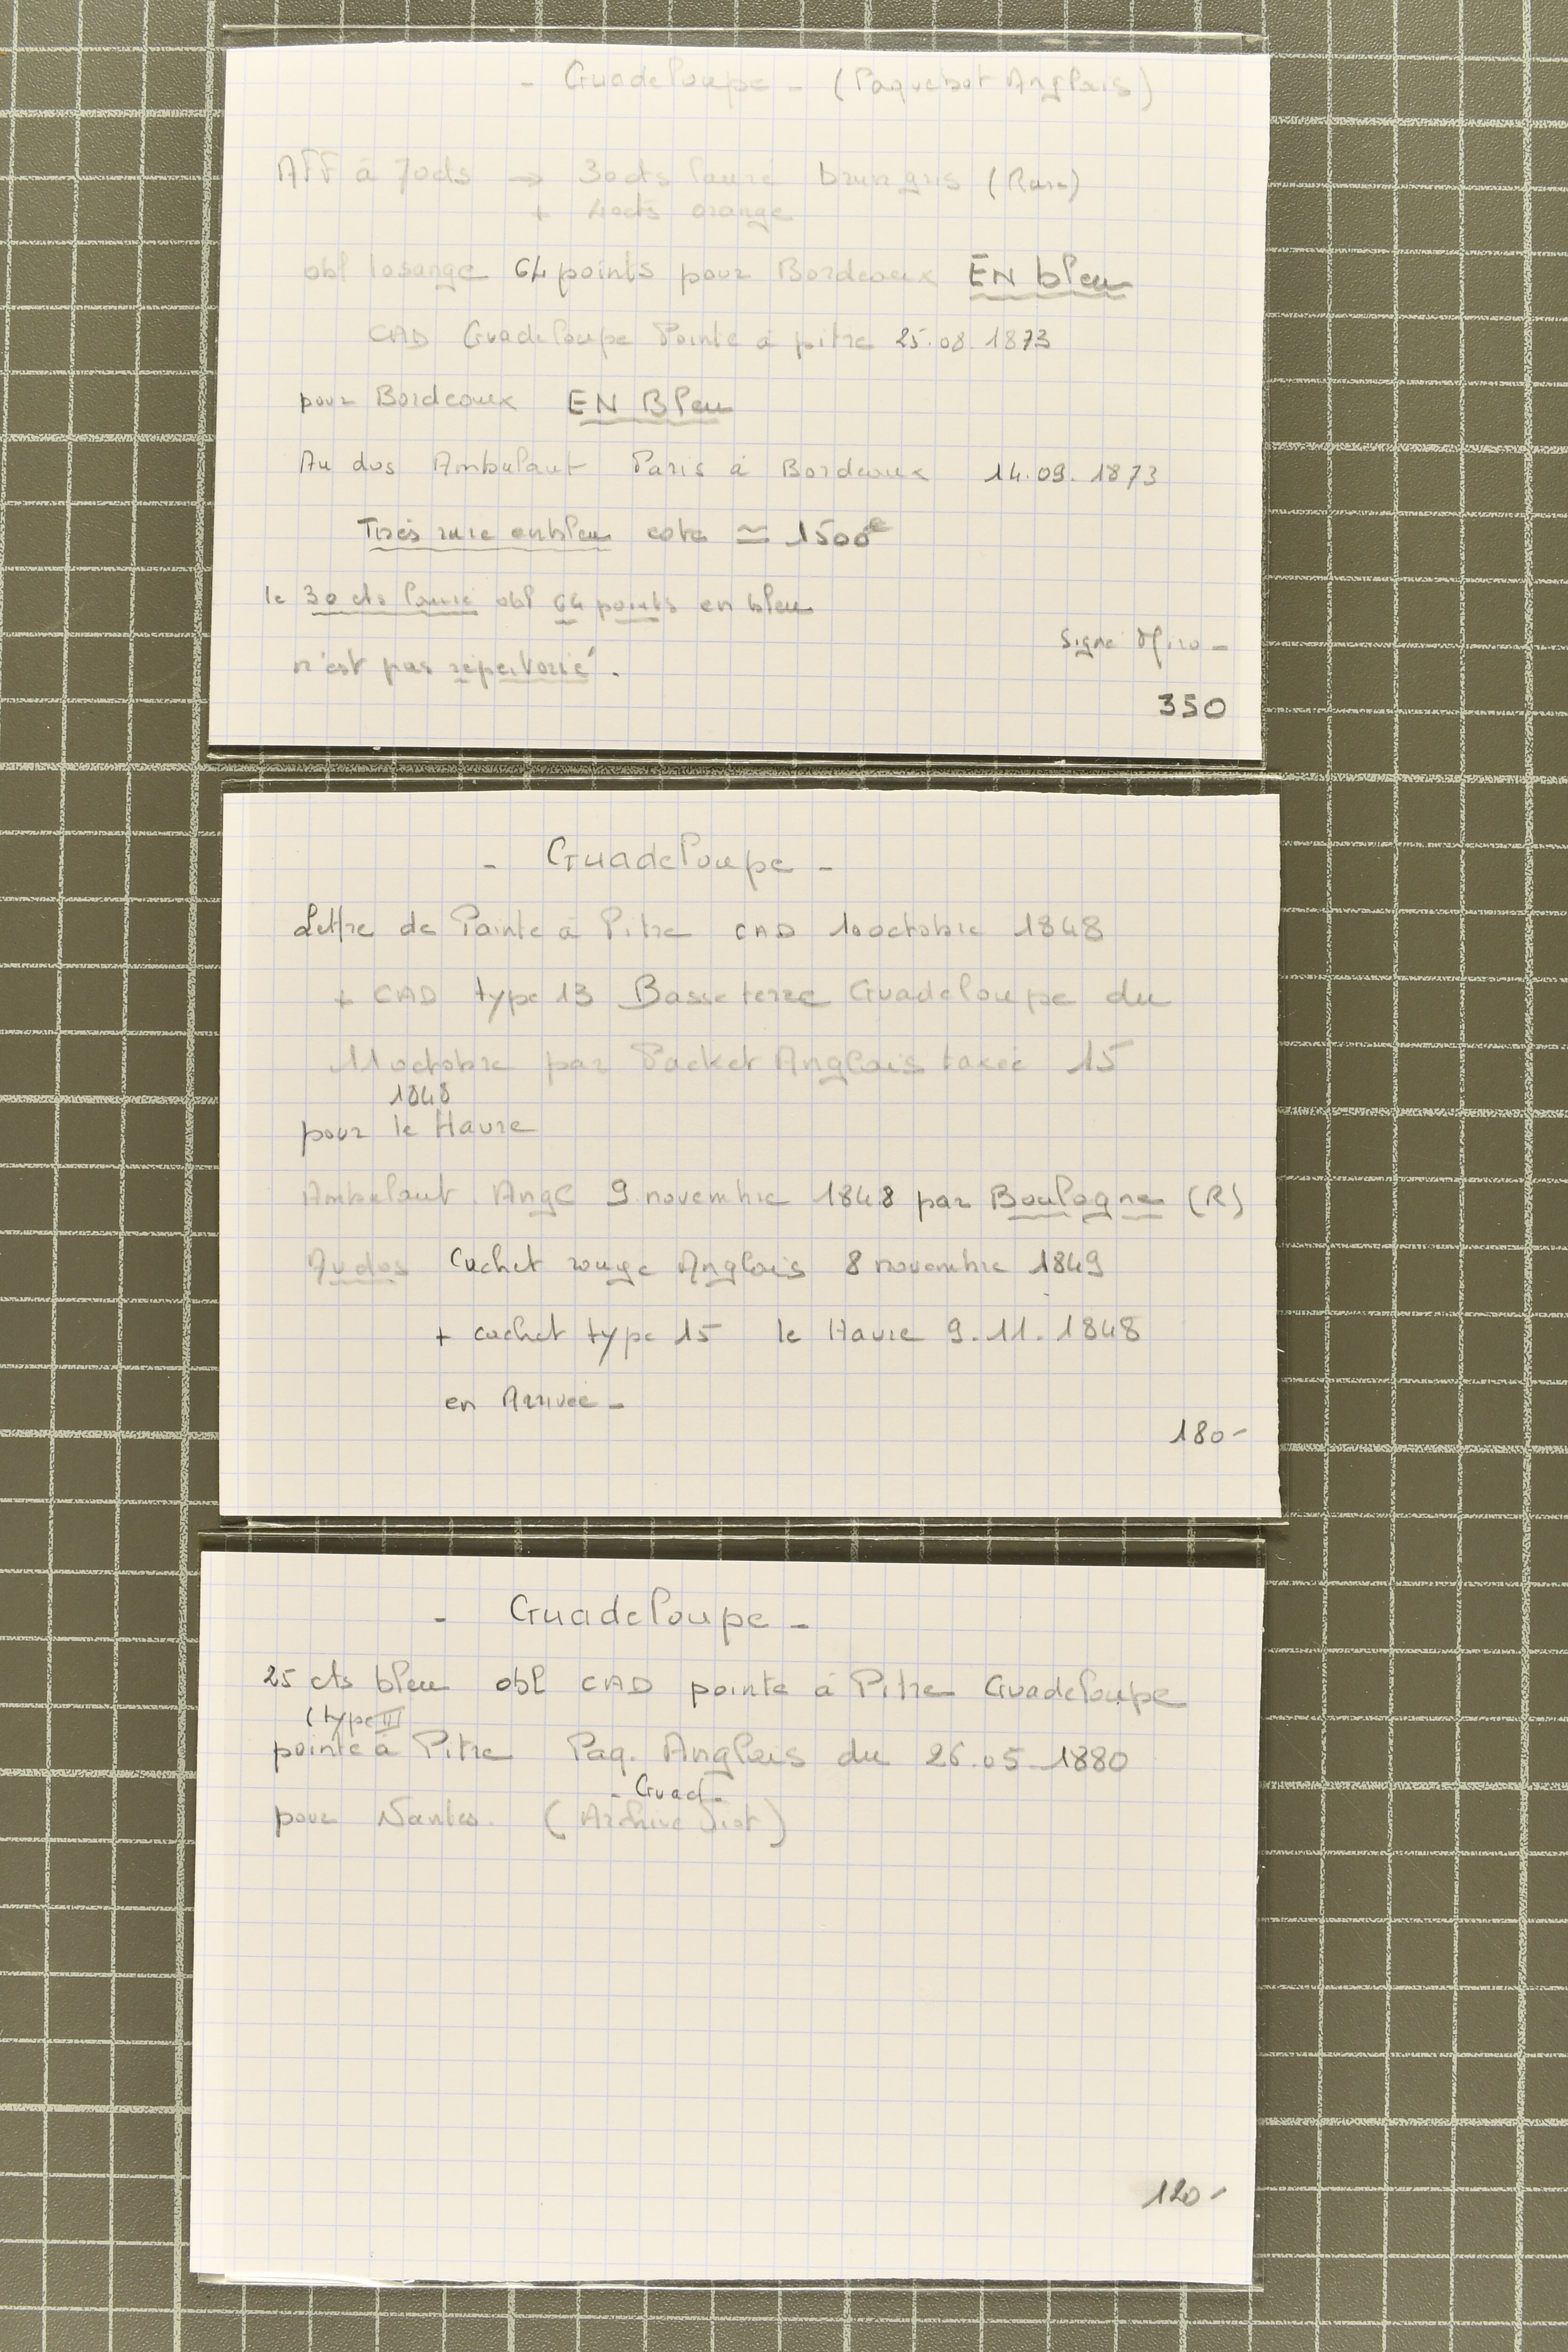 - Guadeloupe - (Paquebot Anglais)
Aff à 70cts → 30cts lauré brun gris (Rare)
+ 40cts orange
obl losange 64 points pour Bordeaux EN bleu
CAD Guadeloupe Pointe à pitre 25.08.1873
pour Bordeaux EN Bleu
Au dos Ambulant Paris à Bordeaux 14.09.1873
Très rare en bleu cote ≃ 1500€
le 30 cts lauré obl 64 points en bleu
n'est pas répertorié.
Signé Miro -
350
- Guadeloupe -
Lettre de Pointe à Pitre CAD 10 octobre 1848
+ CAD type 13 Basse terre Guadeloupe du
11 octobre par Packet Anglais taxée 15
1848
pour le Havre
Ambulant Angl 9 novembre 1848 par Boulogne (R)
Au dos Cachet rouge Anglais 8 novembre 1849
+ cachet type 15 le Havre 9.11.1848
en Arrivée -
180-
- Guadeloupe -
25 cts bleu obl CAD pointe à Pitre Guadeloupe
(type III
pointe à Pitre Paq. Anglais du 26.05-1880
- Guad -
pour Nantes. (Archive)
120-